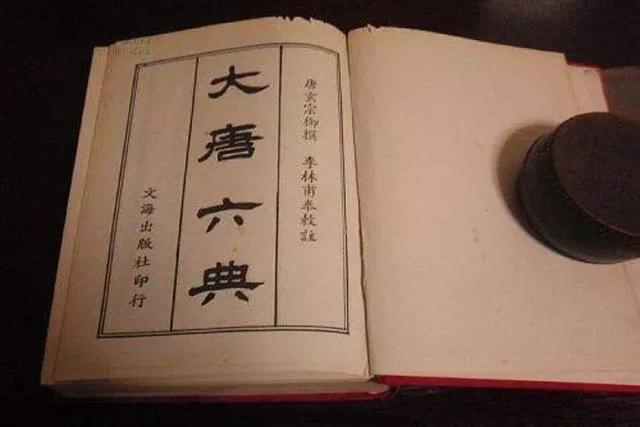 唐玄宗御撰　李林甫奉敕註
大唐六典
文海出版社印行